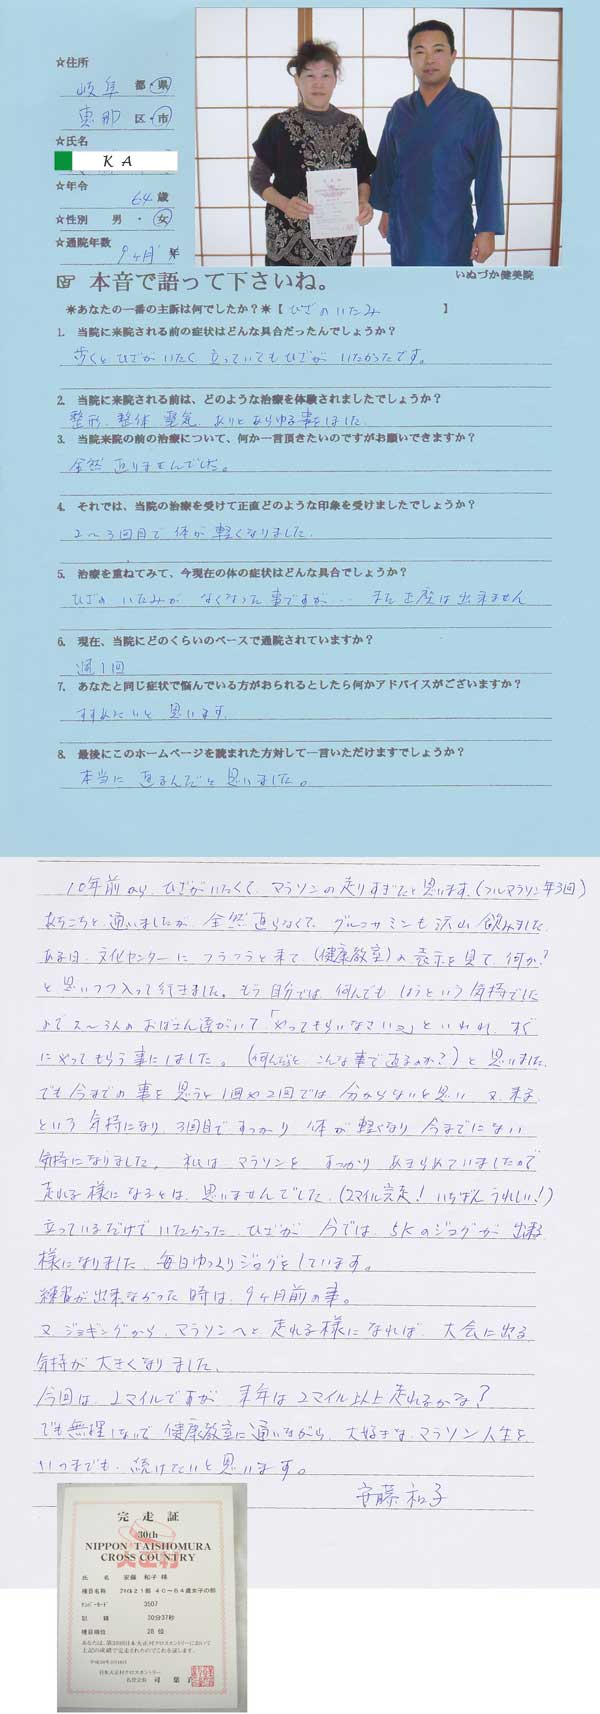 ☆住所
岐阜 都・県
恵那 区・市
☆氏名
K A
☆年令
64歳
☆性別 男・女
☆通院年数
9ヶ月
いぬづか健美院
☞ 本音で語って下さいね。
＊あなたの一番の主訴は何でしたか？＊【 ひざのいたみ 】
1. 当院に来院される前の症状はどんな具合だったんでしょうか？
歩くとひざがいたく 立っていてもひざが いたかったです。
2. 当院に来院される前は、どのような治療を体験されましたでしょうか？
整形、整体 電気、ありとあらゆる事をしました
3. 当院来院の前の治療について、何か一言頂きたいのですがお願いできますか？
全然 直りませんでした。
4. それでは、当院の治療を受けて正直どのような印象を受けましたでしょうか？
2～3回目で体が軽くなりました.
5. 治療を重ねてみて、今現在の体の症状はどんな具合でしょうか？
ひざの いたみが なくなった事ですが… まだ正座は出来ません
6. 現在、当院にどのくらいのペースで通院されていますか？
週1回
7. あなたと同じ症状で悩んでいる方がおられるとしたら何かアドバイスがございますか？
すすめたいと思います.
8. 最後にこのホームページを読まれた方対して一言いただけますでしょうか？
本当に 直るんだと思いました。
10年前から、ひざがいたくて、マラソンの走りすぎだと思います、(フルマラソン年3回)
あちこちと通いましたが 全然直らなくて、グルコサミンも沢山飲みました
ある日、文化センターに フラフラと来て (健康教室)の表示を見て 何か?
と思いつつ入って行きました。もう自分では 何んでも しようという気持でした
2～3人のおばさん達がいて「やってもらいなさい」といわれ、すぐ
にやってもらう事にしました。(何んだろ こんな事で直るのか?)と思いました
でも今までの事を思うと1回や2回では 分からないと思い 又、来る
という気持になり、3回目ですっかり 体が軽くなり 今までにない
気持になりました。私は マラソンを すっかり あきらめていましたので
走れる様になるとは、思いませんでした、(2マイル完走! いちばんうれしい!)
立っているだけで いたかった、ひざが 今では、5Kのジョグが 出来る
様になりました、毎日ゆっくりジョグをしています。
練習が出来なかった時は、9ヶ月前の事。
又、ジョギングから、マラソンへと走れる様になれば、大会に出る
気持が大きくなりました、
今回は、2マイルですが 来年は2マイル以上走れるかな?
でも無理しないで健康教室に通いながら、大好きな マラソン人生を
いつまでも、続けたいと思います。
安藤和子
完走証
30th
NIPPON TAISHOMURA
CROSS COUNTRY
氏名 安藤 和子 様
種目名称 2マイル21部 40～64歳女子の部
ナンバーカード 3507
記録 30分37秒
種目順位 28位
あなたは、第30回日本大正村クロスカントリーにおいて
上記の成績で完走されたのでこれを証します。
日本大正村クロスカントリー
名誉会長 司 葉子